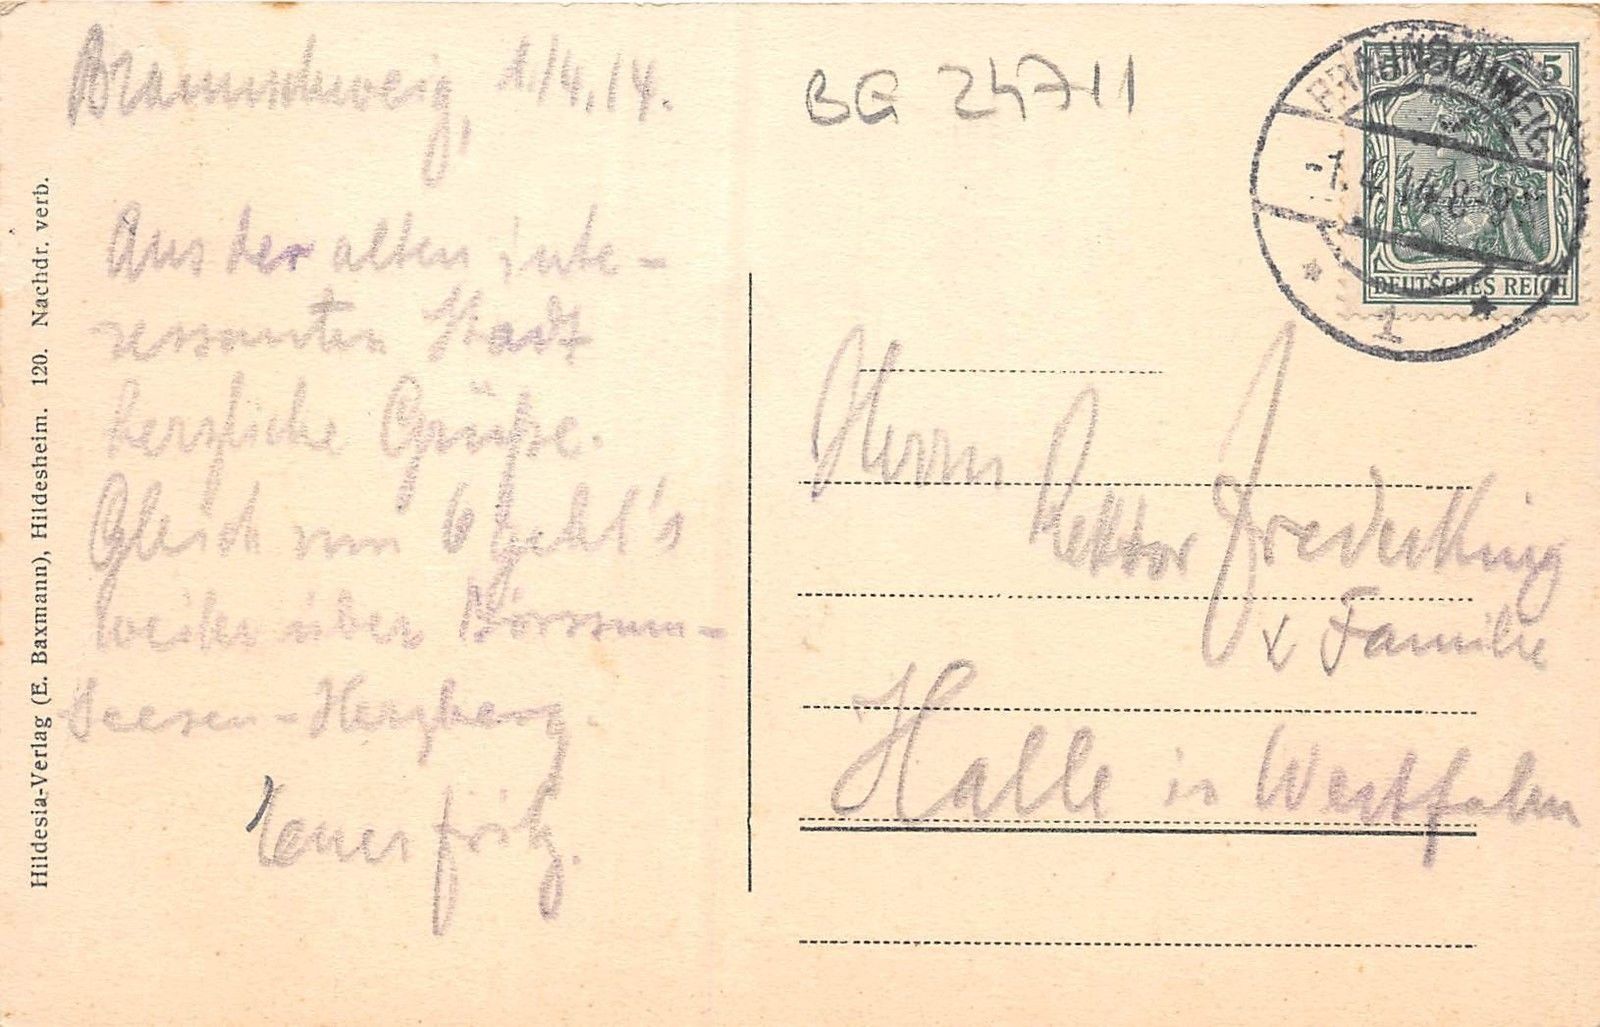 Braunschweig, 1/4.14.
Aus der alten inte-
ressanten Stadt
herzliche Grüße.
Gleich um 6 geht's
weiter über Börssum-
Seesen-Herzberg.
Euer Fritz.
Hildesia-Verlag (E. Baxmann), Hildesheim. 120. Nachdr. verb.
BG 24711
BRAUNSCHWEIG
1.4.14.8-9
* 1 *
5 5
DEUTSCHES REICH
Herrn
Rektor Frederking
& Familie
Halle in Westfalen